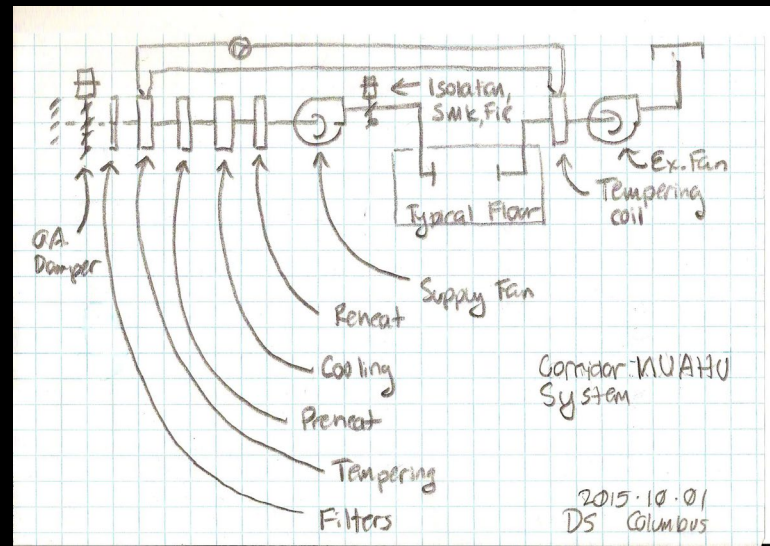 Isolaton,
Smk, Fir
Ex. Fan
Tempering
coil
Typical Floor
O.A.
Damper
Supply Fan
Reheat
Cooling
Preheat
Tempering
Filters
Corridor MUAHU
System
2015.10.01
DS Columbus